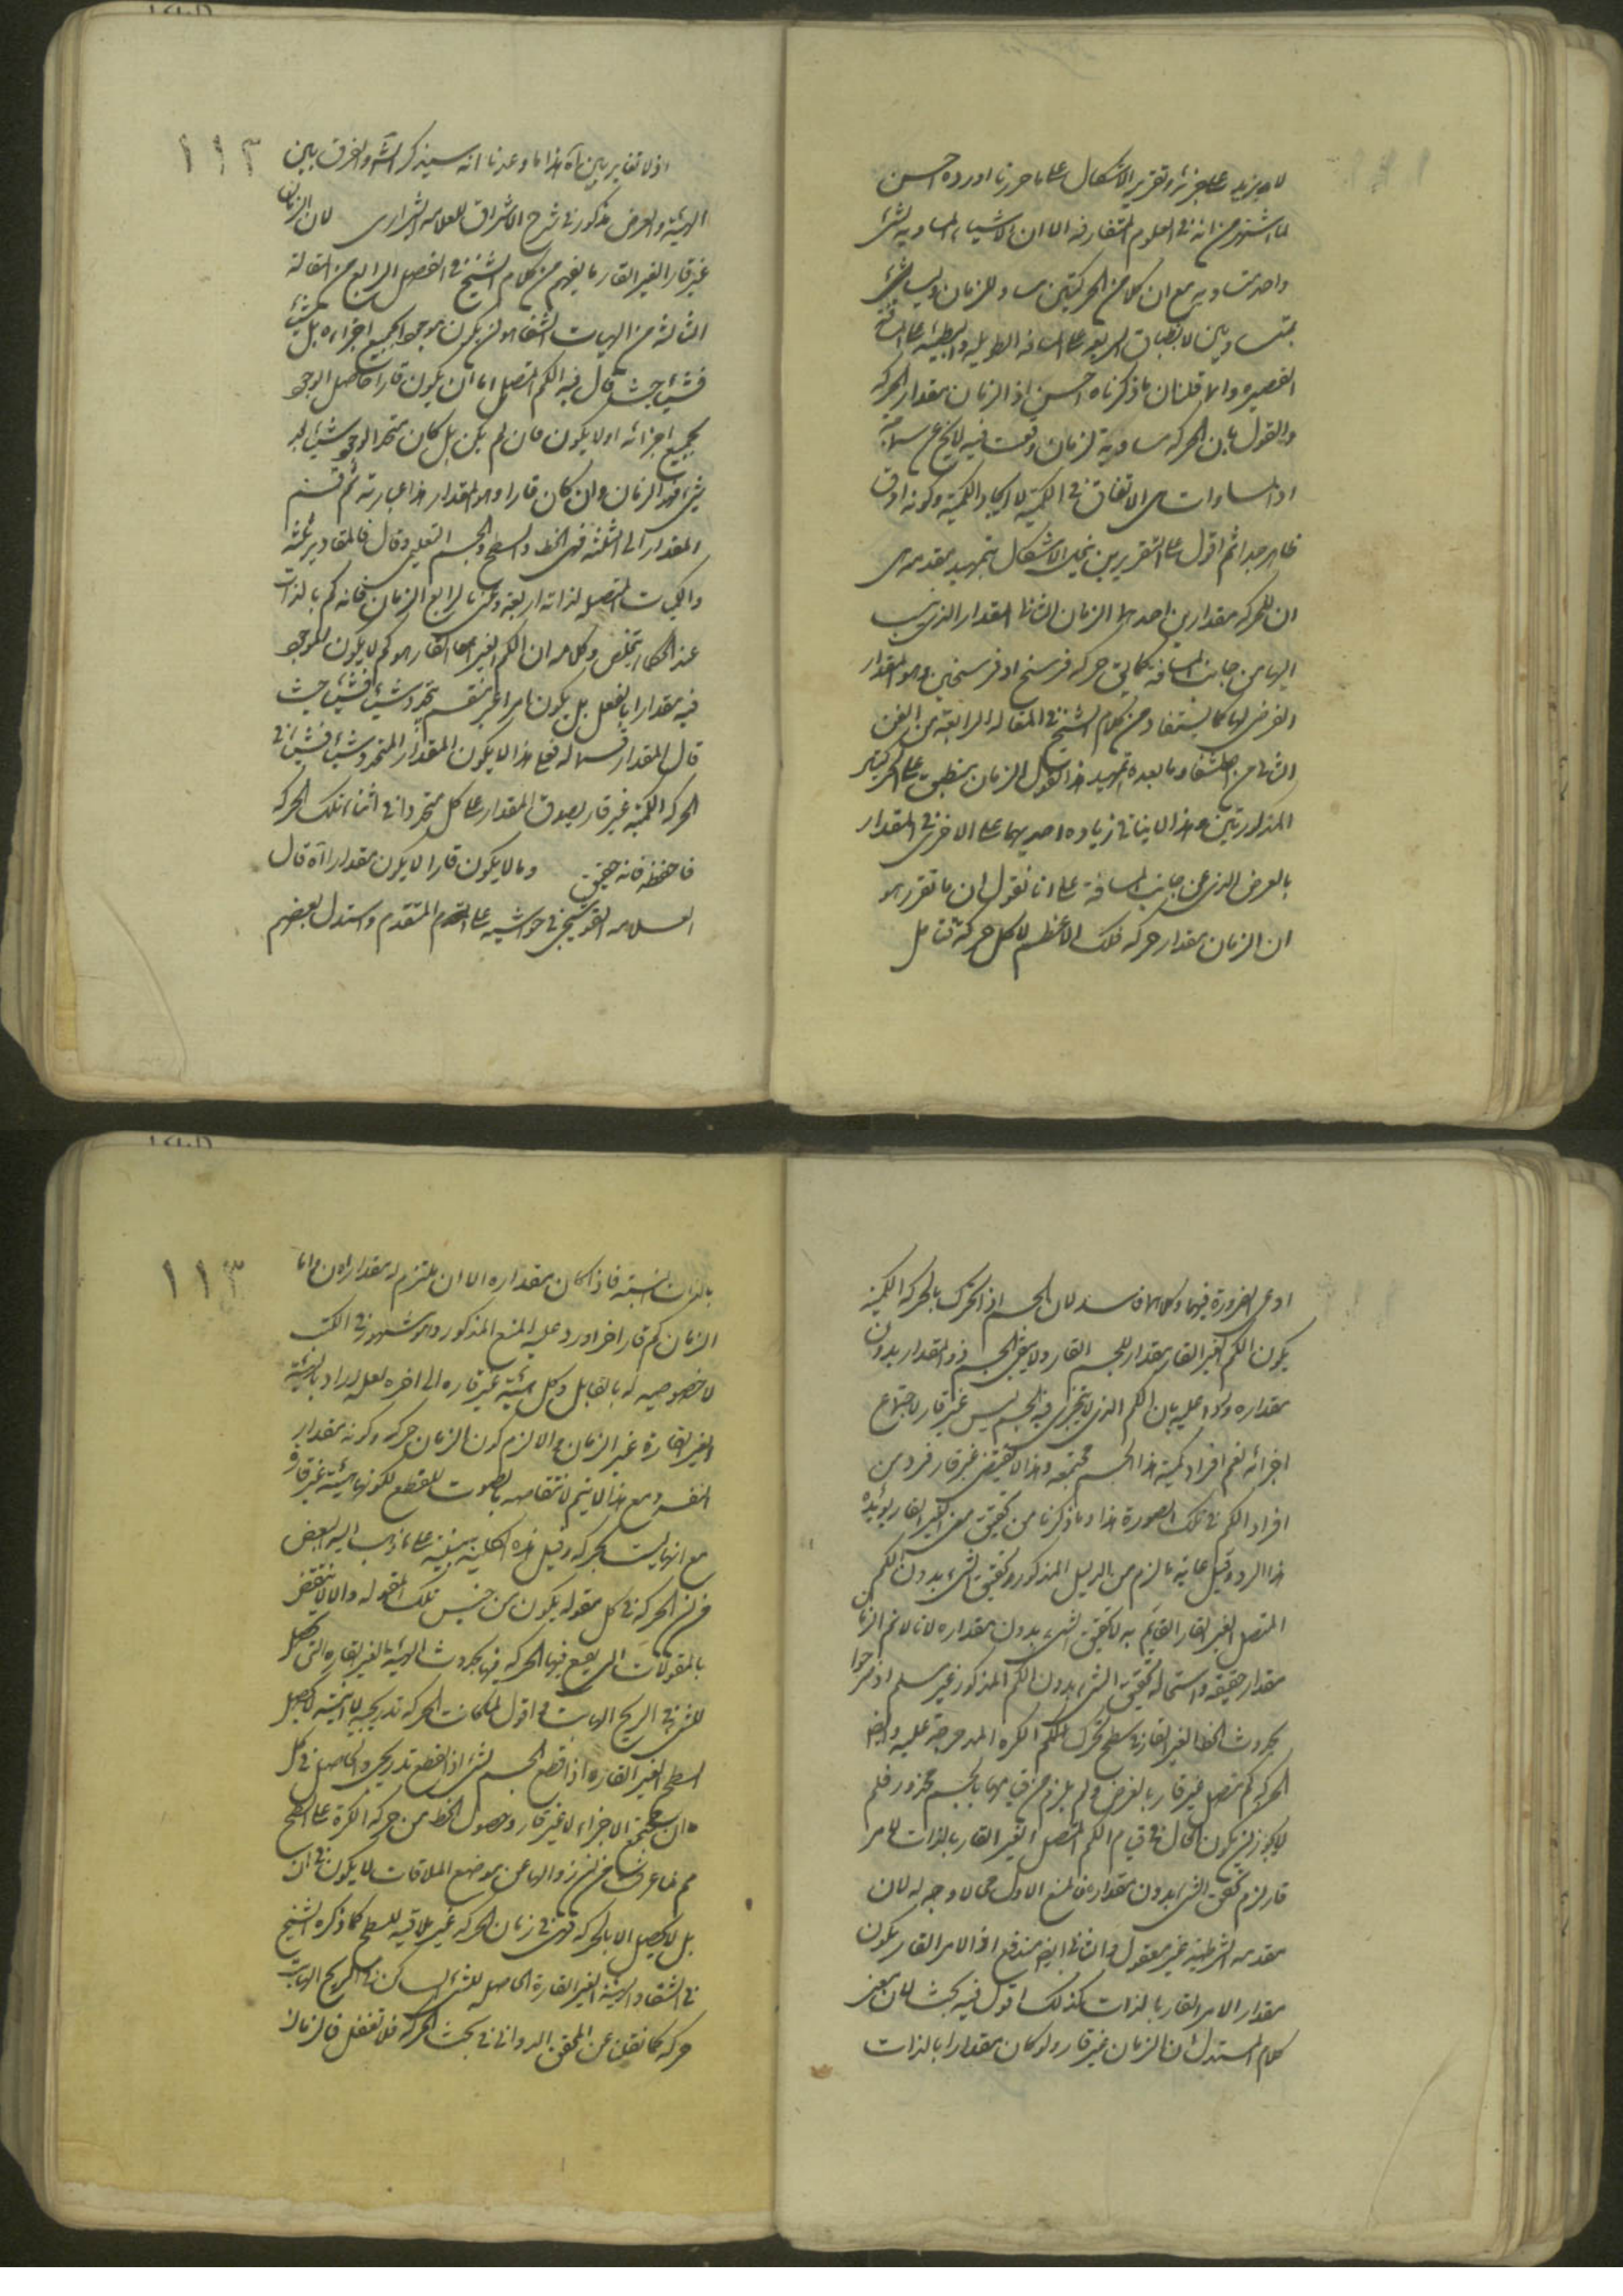 لا يزيد على جزئه وتقرير الاشكال على ما حررنا اورده احسن
لما اشتهر من انه في العلوم المتعارفة الا ان الاشياء المساوية لشئ
واحد متساوية مع ان كلا من الحركتين مساو للزمان وليستا
بمتساويتين لانطباق السريعة على المسافة الطويلة والبطيئة على المسافة
القصيرة والا قلنا ان ما ذكرناه احسن اذ الزمان مقدار الحركة
والقول بان الحركة مساوية لزمان وقعت فيه لا يخ عن سماجة
اذ المساوات هي الاتفاق في الكمية لا ايجاد الكمية وكونه ادق
ظاهر جدا ثم اقول على التقريرين ينحل الاشكال بتمهيد مقدمة هي
ان للحركة مقدارين احدهما الزمان الثاني المقدار الذي
اليها من جانب المسافة كما يق حركة فرسخ او فرسخين وهو المقدار
العرضي لها كما يستفاد من كلام الشيخ في المقالة الرابعة من الفن
الثاني من الشفا وما بعده تمهيد هذا نقول الزمان ينطبق على الحركتين
المذكورتين وهذا لا ينافي زيادة احديهما على الاخرى في المقدار
بالعرض الذي من جانب المسافة على انا نقول ان ما تقرر هو
ان الزمان مقدار حركة فلك الاعظم لا كل حركة فتامل
اذ لا تغاير بين آه هذا ما وعدنا انه سيذكر الش والفرق بين
الهيئة والعرض مذكور في شرح الاشراق للعلامة الشيرازي لان الزمان
غير قار الغير القار ما يفهم من كلام الشيخ في الفصل الرابع من المقالة
الثالثة من الهيات الشفا هو ان يكون موجود الجميع اجزاءه بل شيئا
فشيئا حيث قال فيه الكم المتصل اما ان يكون قارا حاصل الوجود
بجميع اجزائه او لا يكون فان لم يكن بل كان متجدد الوجود شيئا بعد
شئ فهو الزمان وان كان قارا وهو المقدار هذا عبارته ثم قسم
المقدار الى الثلثة فهي الخط والسطح والجسم التعليمي وقال فالمقادير ثلثة
والكميات المتصلة لذاته اربعة وعن بالرابع الزمان فانه كم بالذات
عند الحكماء يتلخص وكلامه ان الكم الغير القار هو كم لا يكون للموجود
فيه مقدارا بالفعل بل يكون امرا غير منقسم يتجدد شيئا فشيئا حيث
قال المقدار قسما له فعلى هذا لا يكون المقدار المتجدد شيئا فشيئا في
الحركة الكمية غير قار لصدق المقدار على كل متجدد في اثناء تلك الحركة
فاحفظه فانه حقيق وما لا يكون قارا لا يكون مقدارا آه قال
العلامة القوشجي في حواشيه على المتقدم واستدل بعضهم
او على الضرورة فيهما وكلاهما فاسد لان الجسم اذا تحرك بالحركة الكمية
يكون الكم الغير القار مقدارا للجسم القار ولا يبقى الجسم ذو المقدار بدون
مقداره ورد عليه بان الكم الذي يتحرك فيه الجسم ليس غير قار لاجتماع
اجزائه نعم افراد كمية هذا الجسم مجتمعة وهذا لا يقتضي غير قار فرد من
افراد الكم في تلك الصورة هذا وما ذكرنا من تحقيق معنى الغير القار يؤيده
هذا الرد وقيل غاية ما لزم من الدليل المذكور وتحقق الشئ بدون الكم
المتصل الغير القار القايم به لا تحقق الشئ بدون مقداره لانا لا نم الزمان
مقدار حقيقة واستحالة تحقق الشئ بدون الكم المذكور غير مسلم اذ صرحوا
بحدوث الخط الغير القار في سطح تحرك الكرة المدحرجة عليه وايضا
الحركة كم متصل غير قار بالعرض ولم يلزم من قيامها بالجسم محذور فلم
لا يجوز ان يكون الحال في قيام الكم المتصل الغير القار بالذات للامر
قار لزم تحقق الشئ بدون مقداره فالمنع الاول مما لا وجه له لان
مقدمه الشرطية غير معقول والثاني ايضا مندفع اذ الامر القار يكون
مقدار الامر القار بالذات كذلك اقول فيه بحث لان بعض
كلام المستدل ان الزمان غير قار ولو كان مقدارا بالذات
فاذا كان مقداره الا ان يلتزم له مقداران واما
الزمان كم قار اخر اورد عليه المنع المذكور وهو مشهور في الكتب
لا خصوصية له بالقابل وكل هيئة غير قاره الى اخره لعل المراد بالهيئة
الغير القارة غير الزمان والا لزم كون الزمان حركة وكونه مقدار
النفسه ومع هذا لا يتم لانتقاضه بالصوت للقطع لكونها هيئة غير قارة
مع انها ليست بحركة وقيل هذه الكلية مبنية على ما ذهب اليه البعض
من ان الحركة في كل مقولة يكون من جنس تلك المقولة والا لانتقض
بالمقولات التي يقع فيها الحركة فيها بحدوث الهيئة الغير القاره التي يحصل
للشئ في الريح الهابة اقول لما كانت الحركة تدريجية لا آنية لا يحصل
السطح الغير القاره اذا قطع الجسم لشئ اذ القطع تدريجي والحاصل في كل
آن مجتمع الاجزاء لا غير قار وحصول الخط من حركة الكرة على السطح
مم لما عرفت من ان زوالها عن موضع الملاقات لا يكون في آن
بل لا يحصل الا بالحركة فهي في زمان الحركة غير ملاقية للسطح كما ذكره الشيخ
في الشفا والهيئة الغير القارة الحاصلة للشئ الساكن في الريح الهابة
حركة كما نقل عن المحقق الدواني في بحث الحركة فلا تغفل فالزمان
١١٢
١١٣